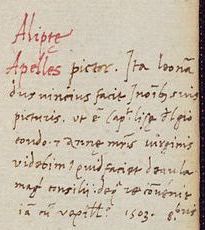 Aliptę
Apelles pictor. Ita Leonar
dus uincius facit in oĩbus suis
picturis. ut ẽ Caput lisę del gio
condo. et annę matris uirginis
videbimus quid faciet de aula
magni consilii. de qua re cõuenit
iã cũ vexillº. 1503. 8bris